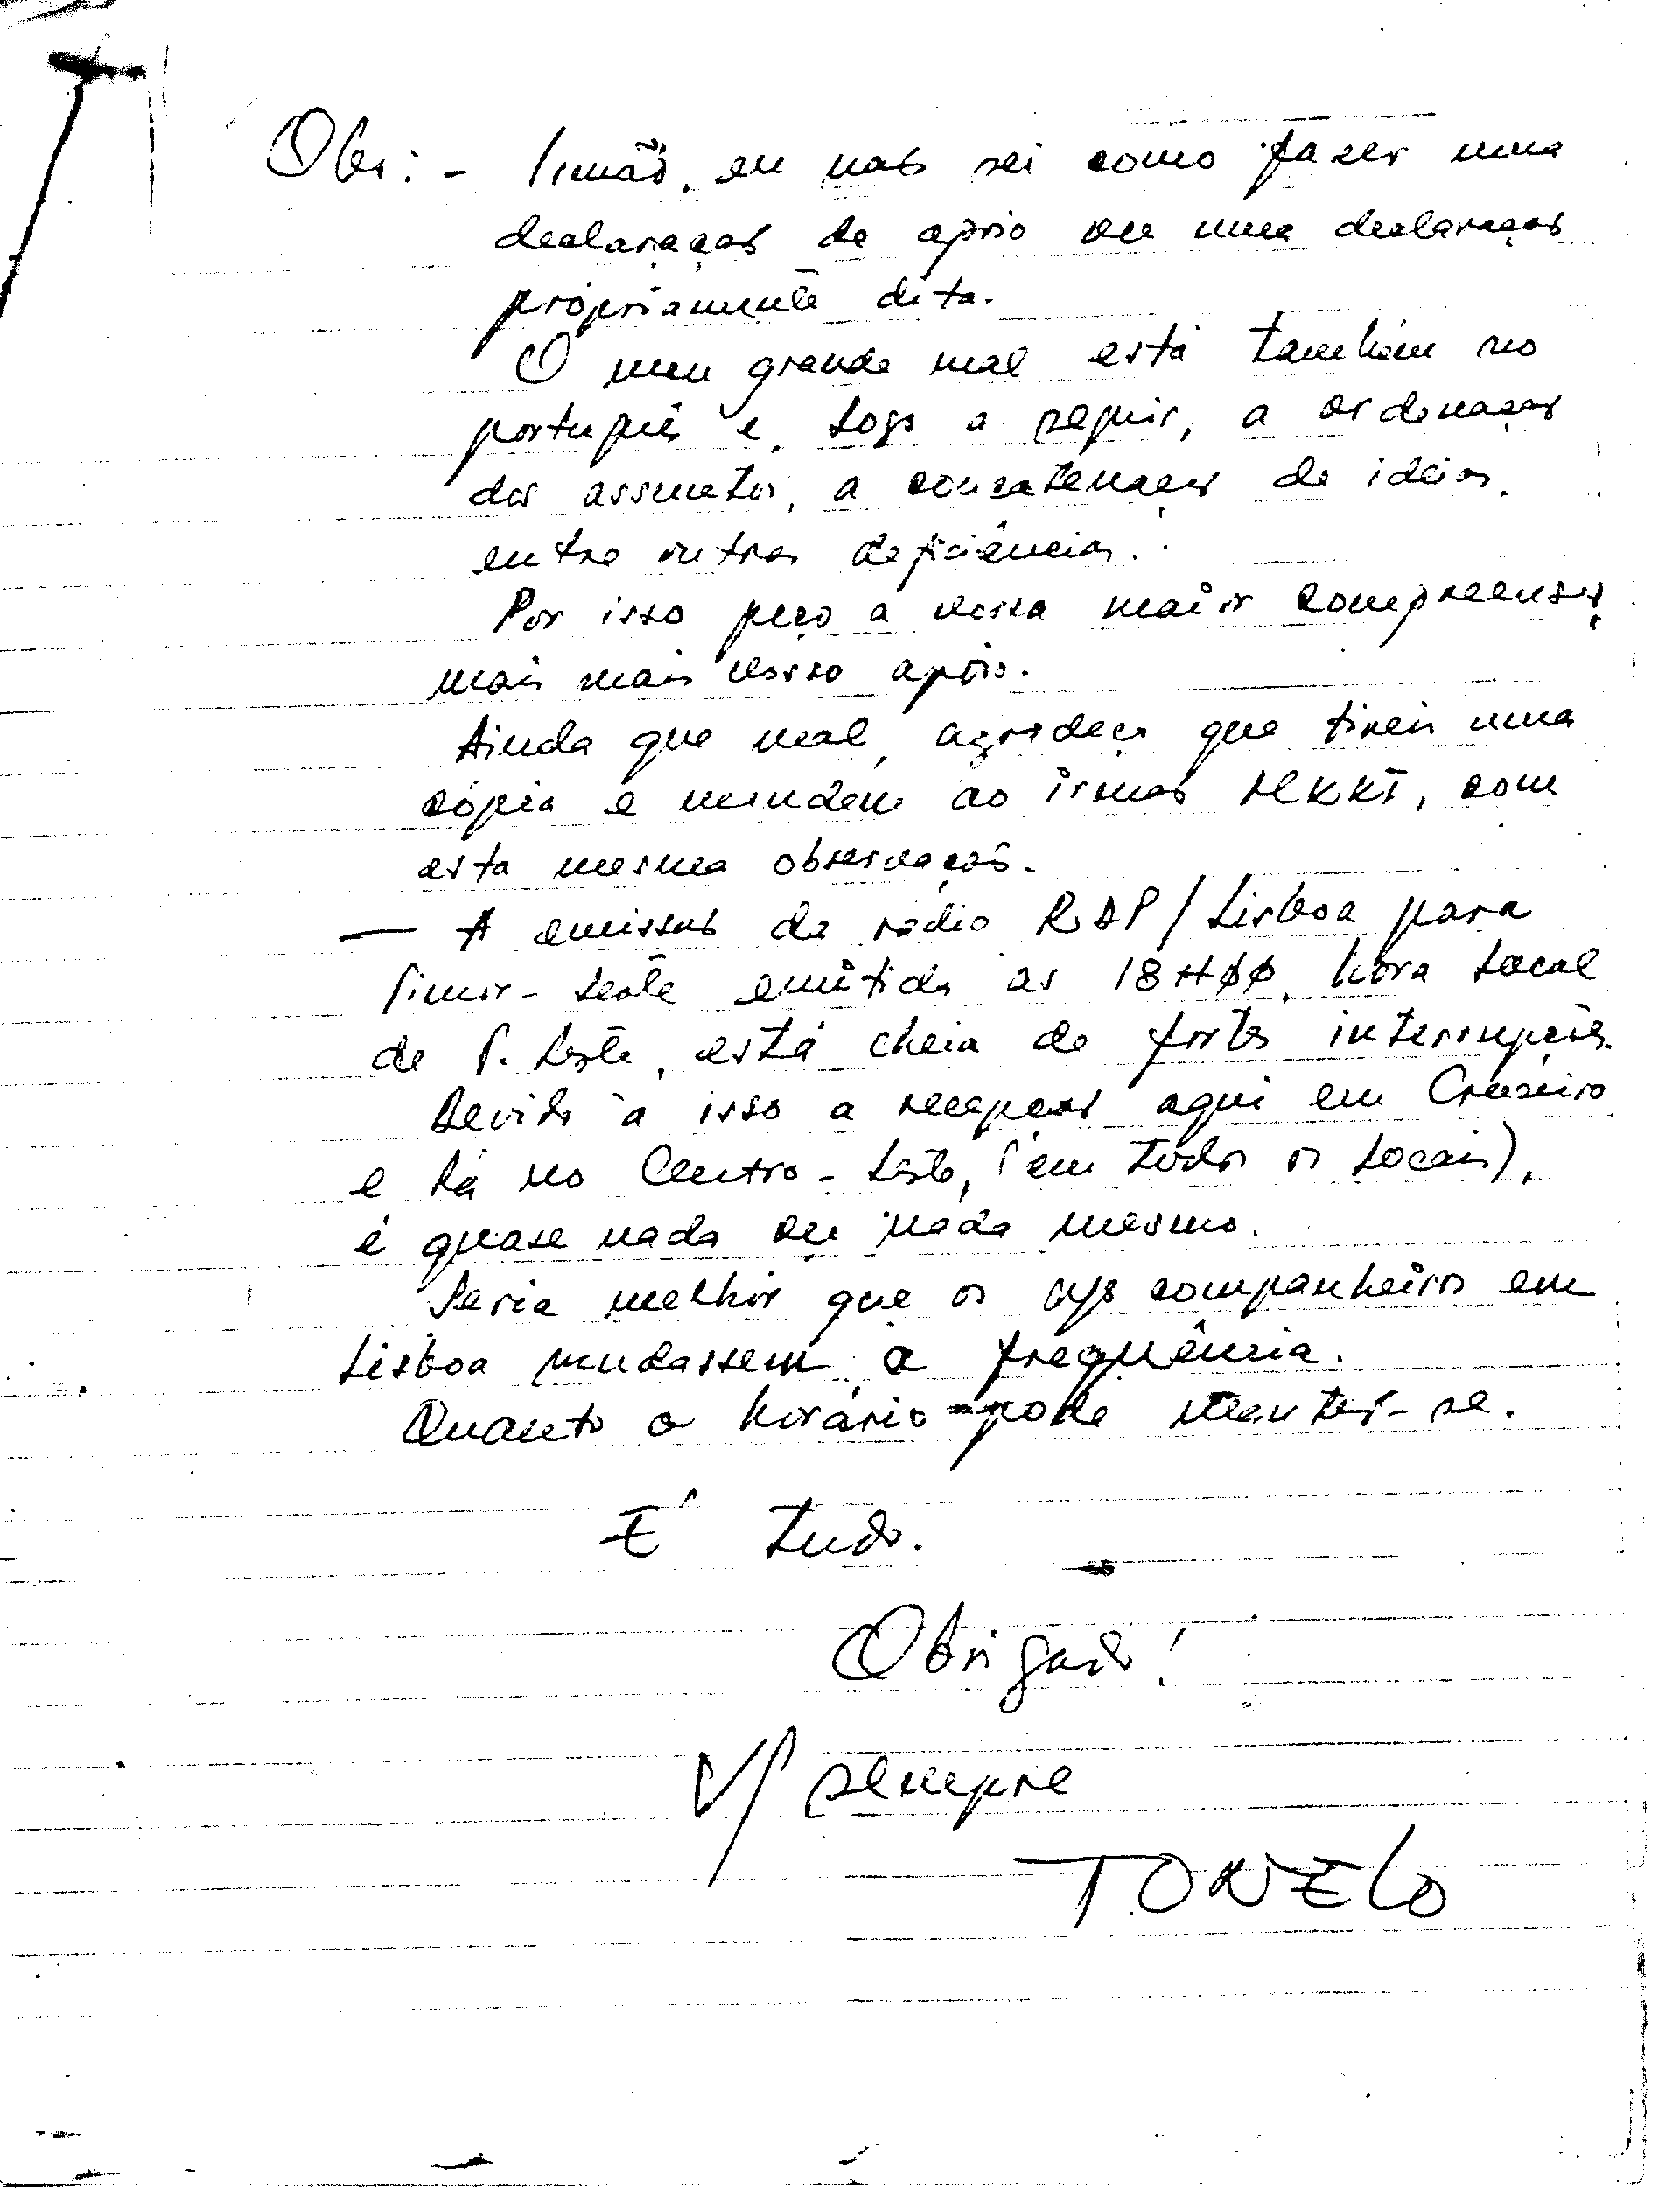 Obs: - Irmão, eu não sei como fazer uma
declaração de apoio ou uma declaração
própriamente dita.
O meu grande mal está também no
português e, logo a seguir, a ordenação
dos assuntos, a concatenação de ideias,
entre outras deficiências.
Por isso peço a vossa maior compreensão,
mais mais vosso apoio.
Ainda que mal, agradeço que tireis uma
cópia e mandem ao irmão MKKI, com
esta mesma observação.
— A emissão da rádio RDP/Lisboa para
Timor-Leste emitida as 18H00, hora local
de T. Leste, está cheia de fortes interrupções.
Devido à isso a recepção aqui em Cruzeiro
e lá no Centro-Leste, (em todos os locais),
é quase nada ou nada mesmo.
Seria melhor que os companheiros em
Lisboa mudassem a frequência.
Quanto o horário pode manter-se.
É tudo.
Obrigado!
V/ sempre
TONELO